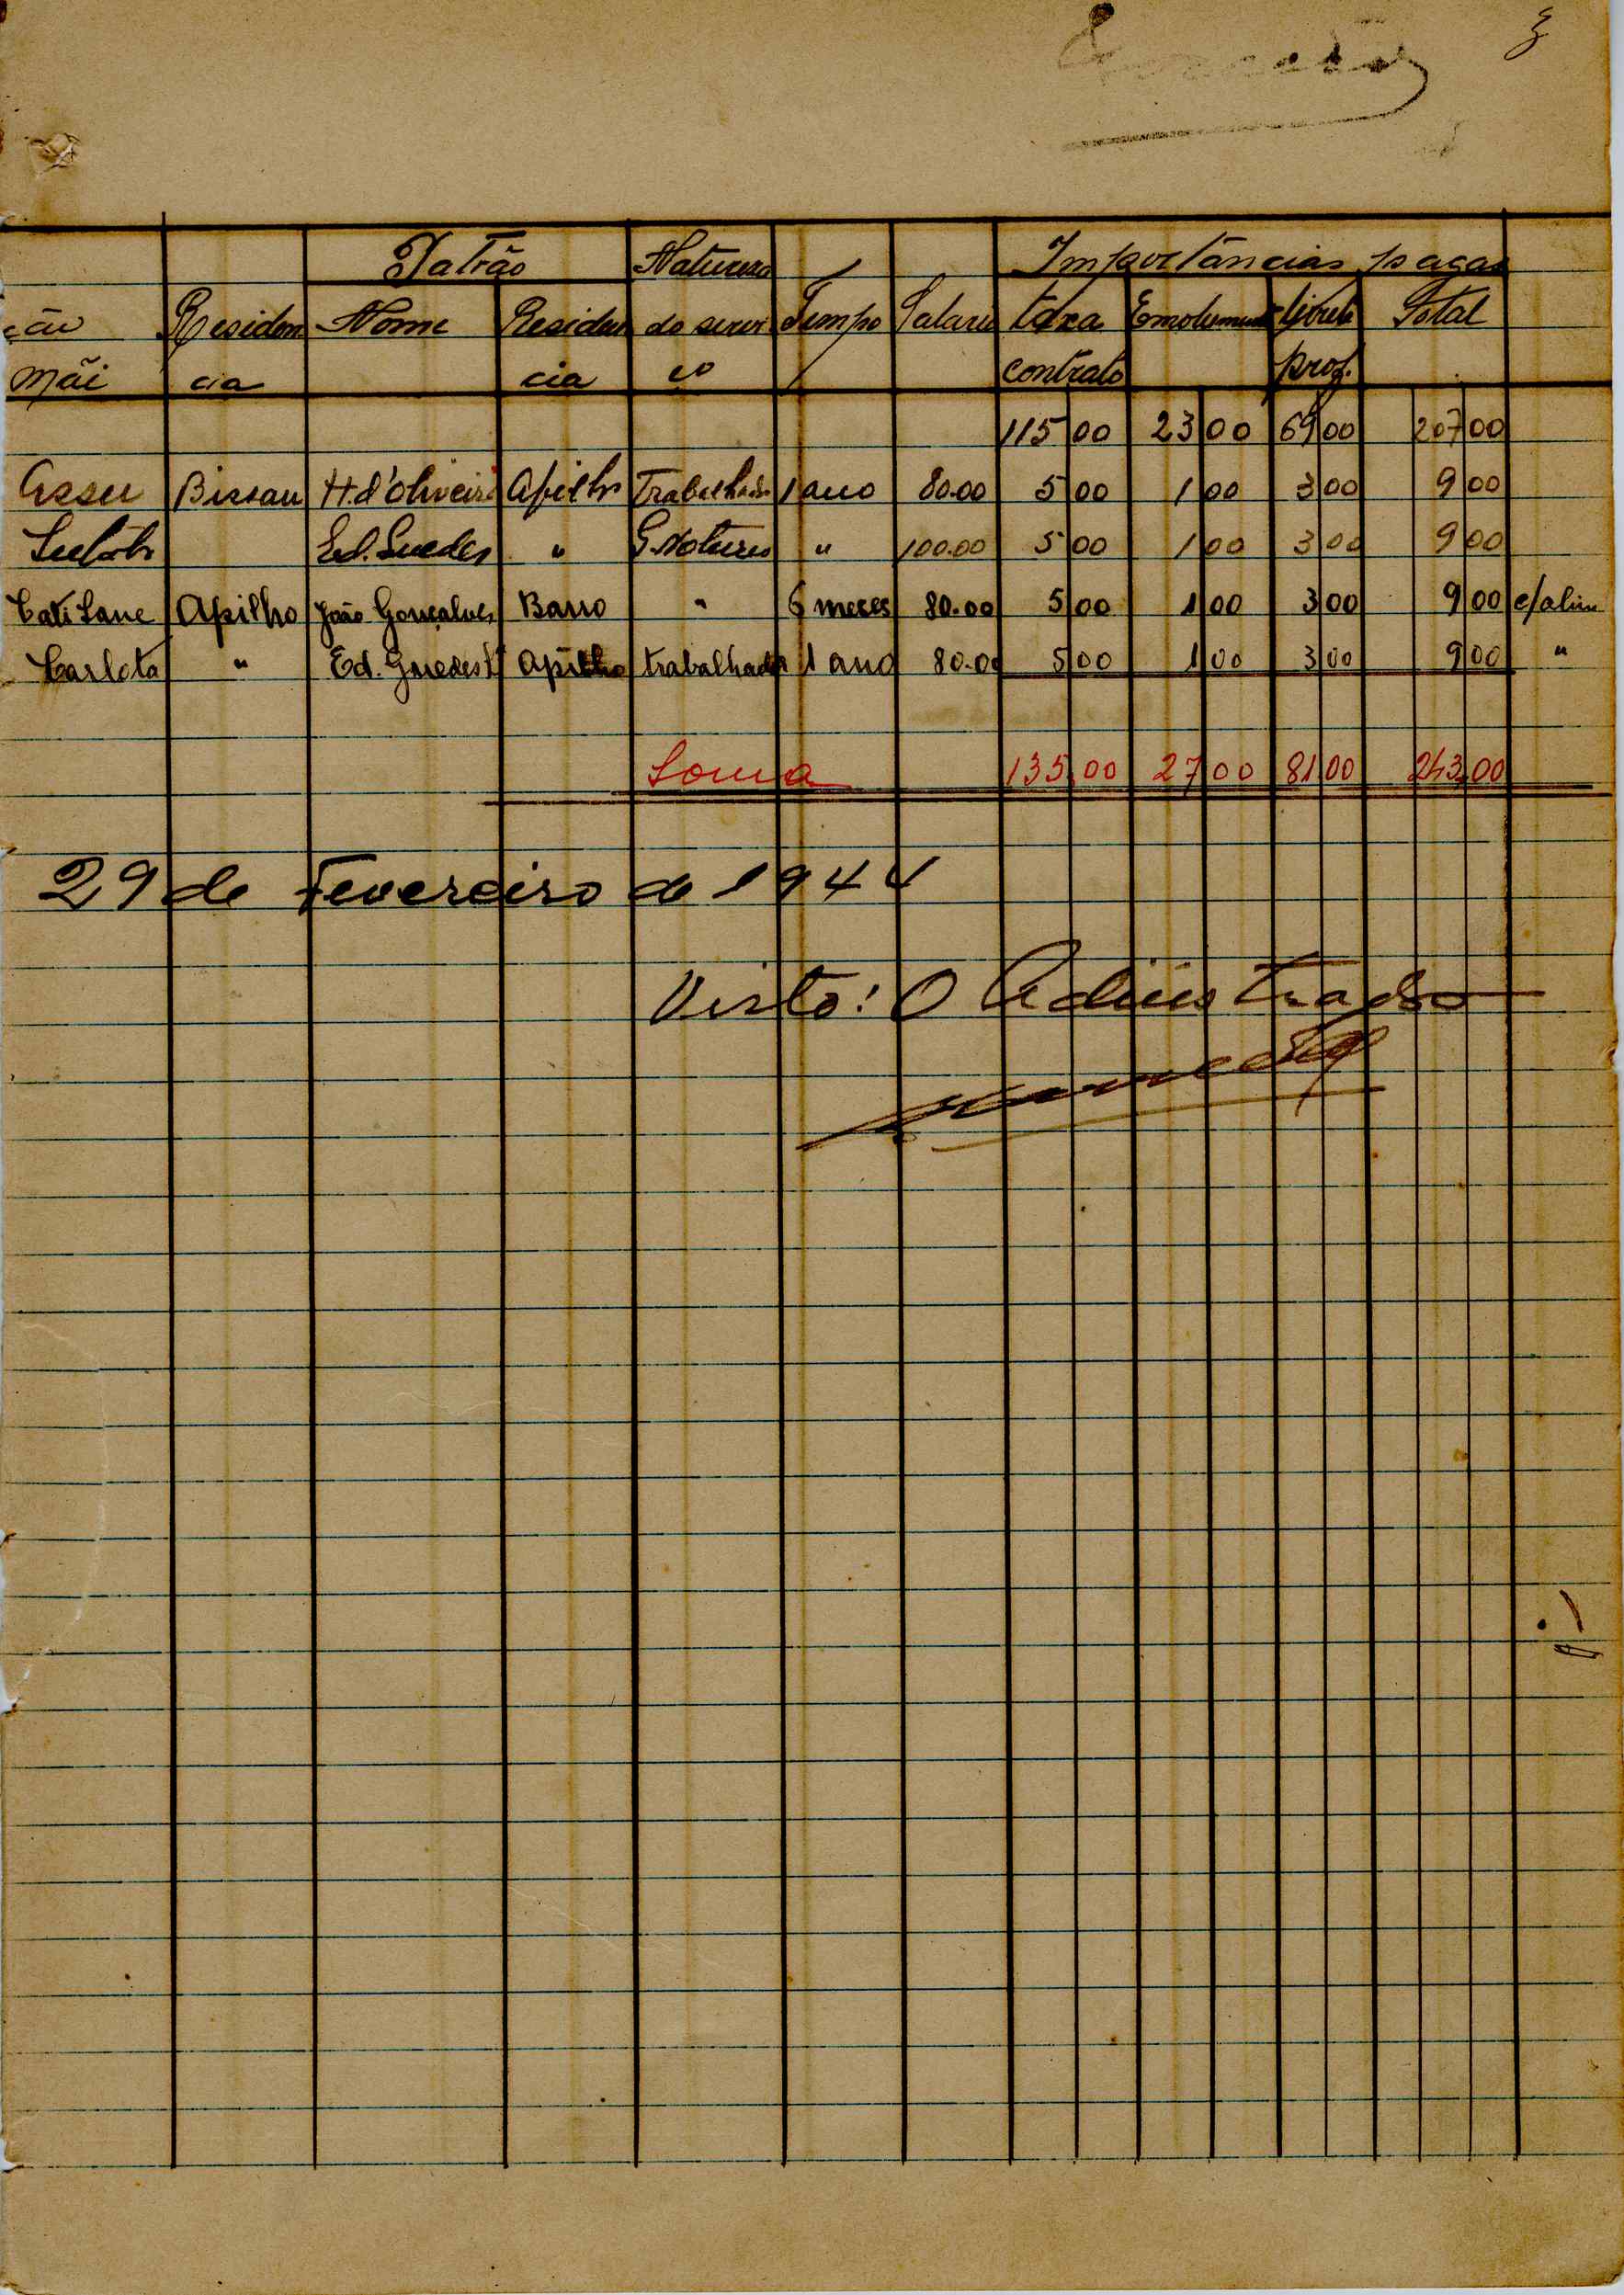 3
Patrão Natureza Importâncias pagas
ção Residen Nome Residen do servi Tempo Salario taxa Emolumentos livrete Total
mãi cia cia ço contrato prof.
115 00 23 00 69 00 207 00
Assu Bissau H. d'Oliveira Apilho Trabalhador 1 ano 80.00 5 00 1 00 3 00 9 00
Ed. Guedes " " 100.00 5 00 1 00 3 00 9 00
Cati Sane Apilho João Gonçalves Barro " 6 meses 80.00 5 00 1 00 3 00 9 00 c/alim
Carlota " Ed. Guedes Apilho trabalhador 1 ano 80.00 5 00 1 00 3 00 9 00 "
Soma 135,00 27 00 81 00 243,00
29 de Fevereiro de 1944
Visto: O Administrador